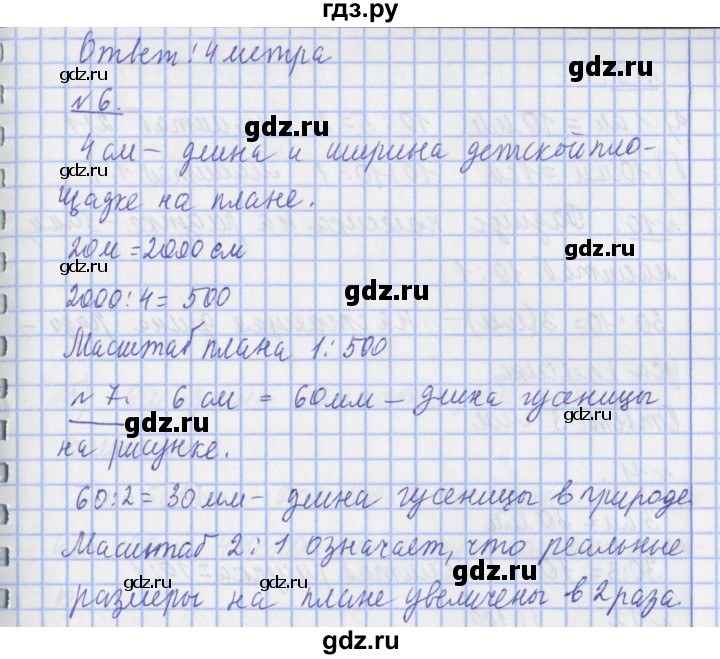 гдз.ру
Ответ: 4 метра
gdz.ru gdz.ru
№ 6.
gdz.ru
4 см – длина и ширина детской пло-
gdz.ru
щадке на плане.
20м = 2000 см
gdz.ru
gdz.ru
gdz.ru
2000 : 4 = 500
Масштаб плана 1 : 500
gdz.ru
№ 7. 6 см = 60мм – длина гусеницы
gdz.ru
на рисунке.
gdz.ru
60 : 2 = 30мм – длина гусеницы в природе
gdz.ru
Масштаб 2 : 1 означает, что реальные
gdz.ru
gdz.ru gdz.ru
размеры на плане увеличены в 2 раза.
gdz.ru